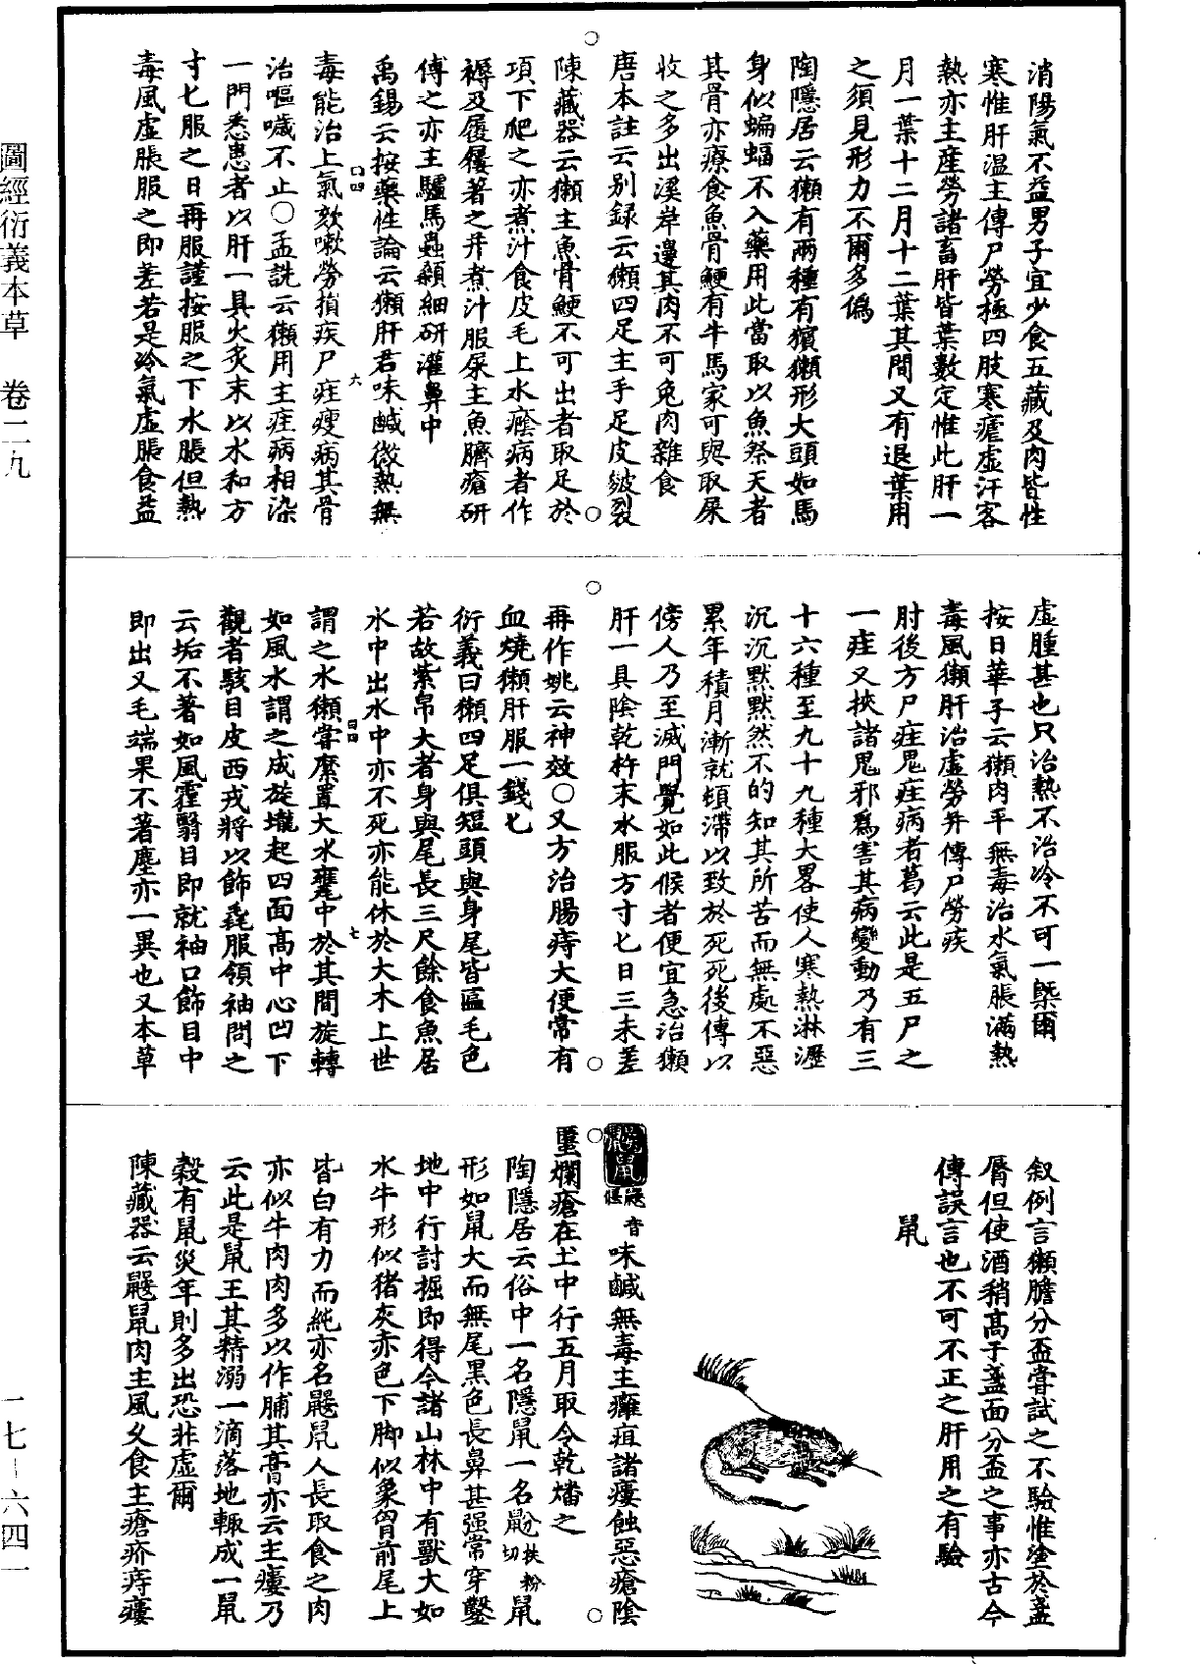 圖經衍義本草　卷二九
一七–六四一
消陽氣不益男子宜少食五藏及肉皆性
寒惟肝溫主傳尸勞極四肢寒瘧虛汗客
熱亦主産勞諸畜肝皆葉數定惟此肝一
月一葉十二月十二葉其間又有退葉用
之須見形力不爾多偽
陶隱居云獺有兩種有獱獺形大頭如馬
身似蝙蝠不入藥用此當取以魚祭天者
其骨亦療食魚骨鯁有牛馬家可與取屎
收之多出溪岸邊其肉不可兔肉雜食
唐本註云别録云獺四足主手足皮皴裂
陳藏器云獺主魚骨鯁不可出者取足於
項下爬之亦煮汁食皮毛上水癊病者作
褥及履屧著之并煮汁服屎主魚臍瘡研
傅之亦主驢馬蟲顙細研灌鼻中
禹錫云按藥性論云獺肝君味鹹微熱無
毒能治上氣欬嗽勞損疾尸疰瘦病其骨
治嘔噦不止○孟詵云獺用主疰病相染
一門悉患者以肝一具火炙末以水和方
寸匕服之日再服謹按服之下水脹但熱
毒風虛脹服之即差若是冷氣虛脹食益
虛腫甚也只治熱不治冷不可一槩爾
按日華子云獺肉平無毒治水氣脹滿熱
毒風獺肝治虛勞并傳尸勞疾
肘後方尸疰鬼疰病者葛云此是五尸之
一疰又挾諸鬼邪爲害其病變動乃有三
十六種至九十九種大畧使人寒熱淋瀝
沉沉默默然不的知其所苦而無處不惡
累年積月漸就頓滯以致於死死後傳以
傍人乃至滅門覺如此候者便宜急治獺
肝一具陰乾杵末水服方寸匕日三未差
再作姚云神效○又方治腸痔大便常有
血燒獺肝服一錢匕
衍義曰獺四足俱短頭與身尾皆匾毛色
若故紫帛大者身與尾長三尺餘食魚居
水中出水中亦不死亦能休於大木上世
謂之水獺嘗縻置大水甕中於其間旋轉
如風水謂之成旋壠起四面高中心凹下
觀者駭目皮西戎將以飾毳服領袖問之
云垢不著如風霾翳目即就袖口飾目中
即出又毛端果不著塵亦一異也又本草
叙例言獺膽分盃嘗試之不驗惟塗於盞
脣但使酒稍高于盞面分盃之事亦古今
傳誤言也不可不正之肝用之有驗
鼠
音偃味鹹無毒主癰疽諸瘻蝕惡瘡陰
䘌爛瘡在土中行五月取令乾燔之
陶隱居云俗中一名隱鼠一名鼢扶粉切鼠
形如鼠大而無尾黑色長鼻甚强常穿鑿
地中行討掘即得今諸山林中有獸大如
水牛形似猪灰赤色下脚似象胷前尾上
皆白有力而純亦名鼹鼠人長取食之肉
亦似牛肉肉多以作脯其膏亦云主瘻乃
云此是鼠王其精溺一滴落地輒成一鼠
穀有鼠災年則多出恐非虛爾
陳藏器云鼹鼠肉主風久食主瘡疥痔瘻